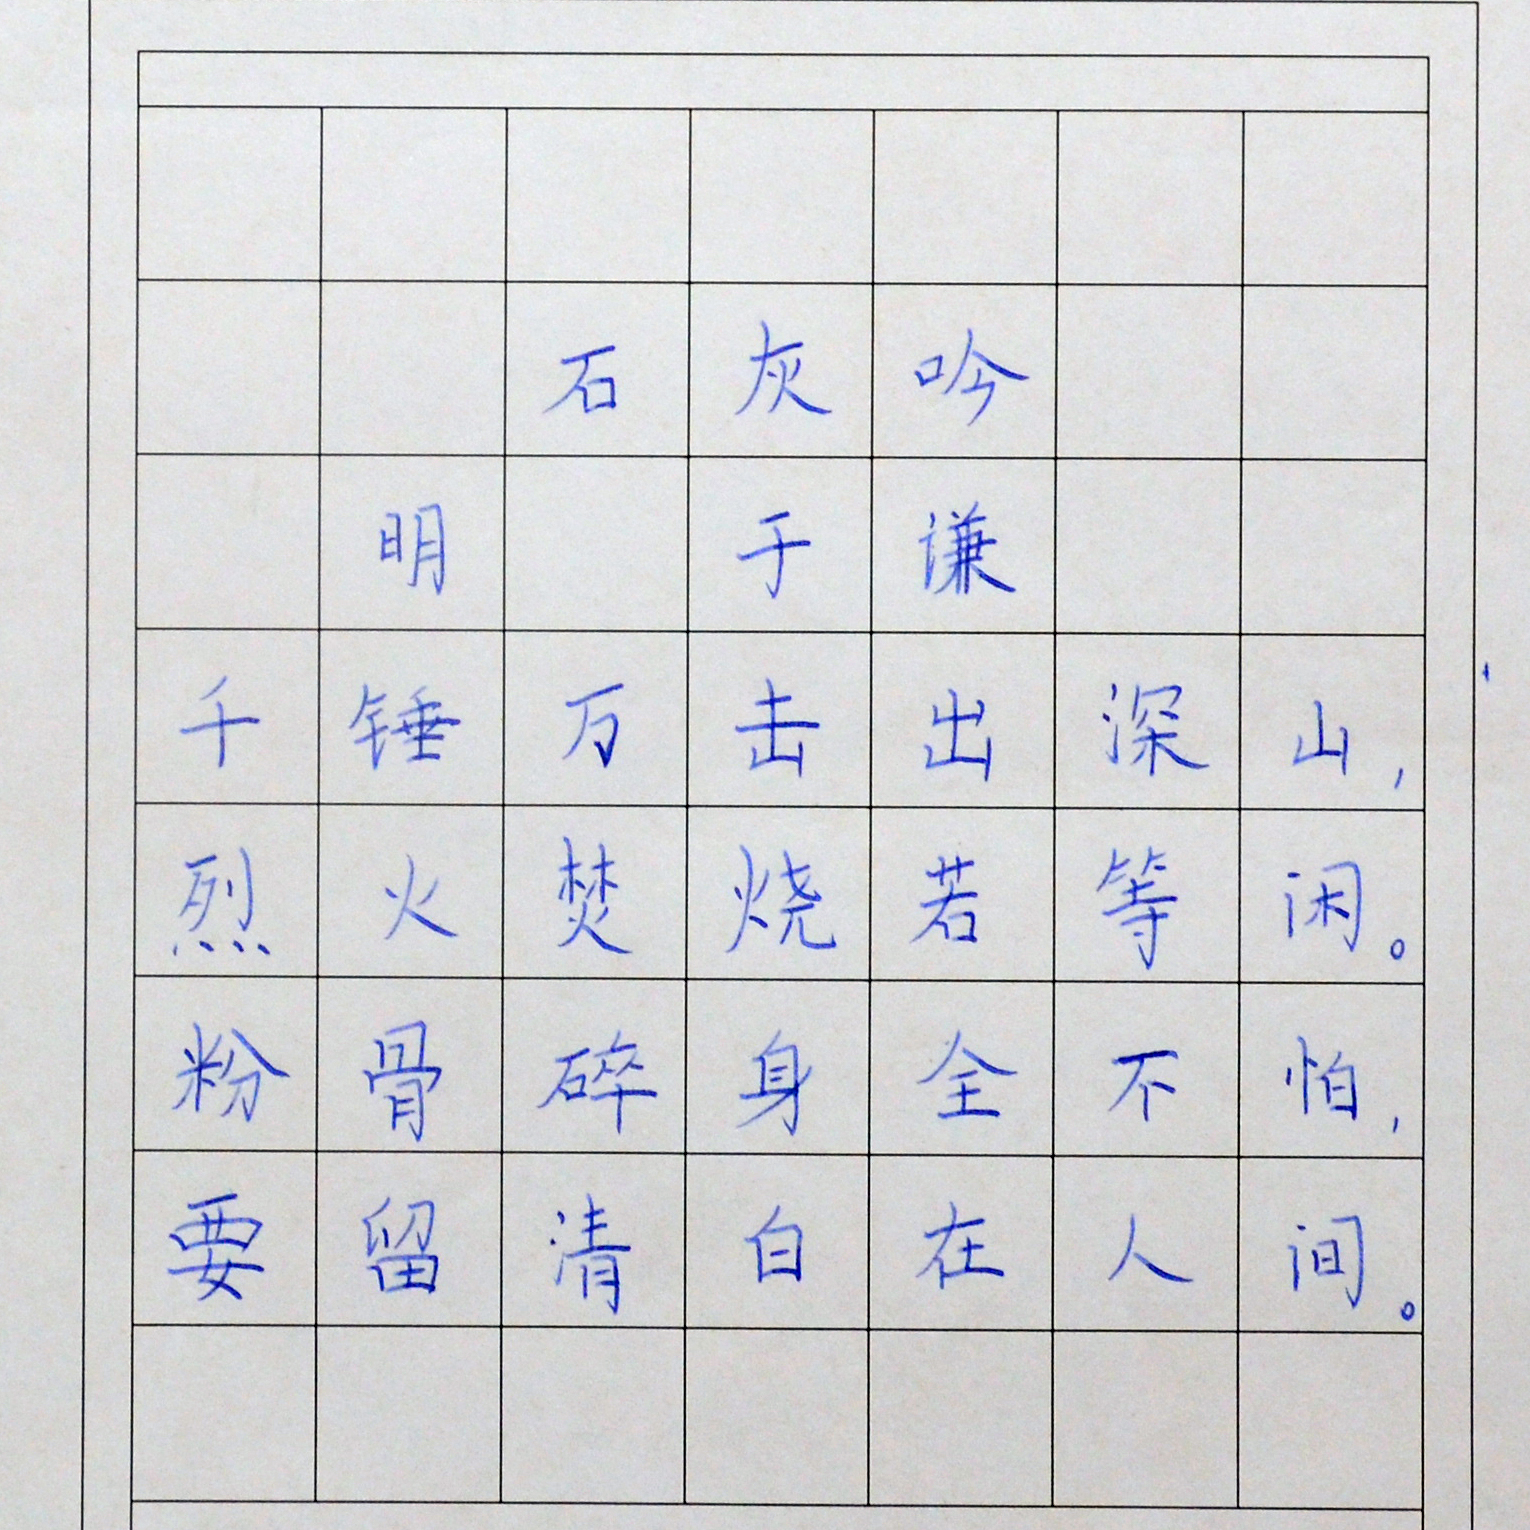 石灰吟
明 于谦
千锤万击出深山,
烈火焚烧若等闲。
粉骨碎身全不怕,
要留清白在人间。